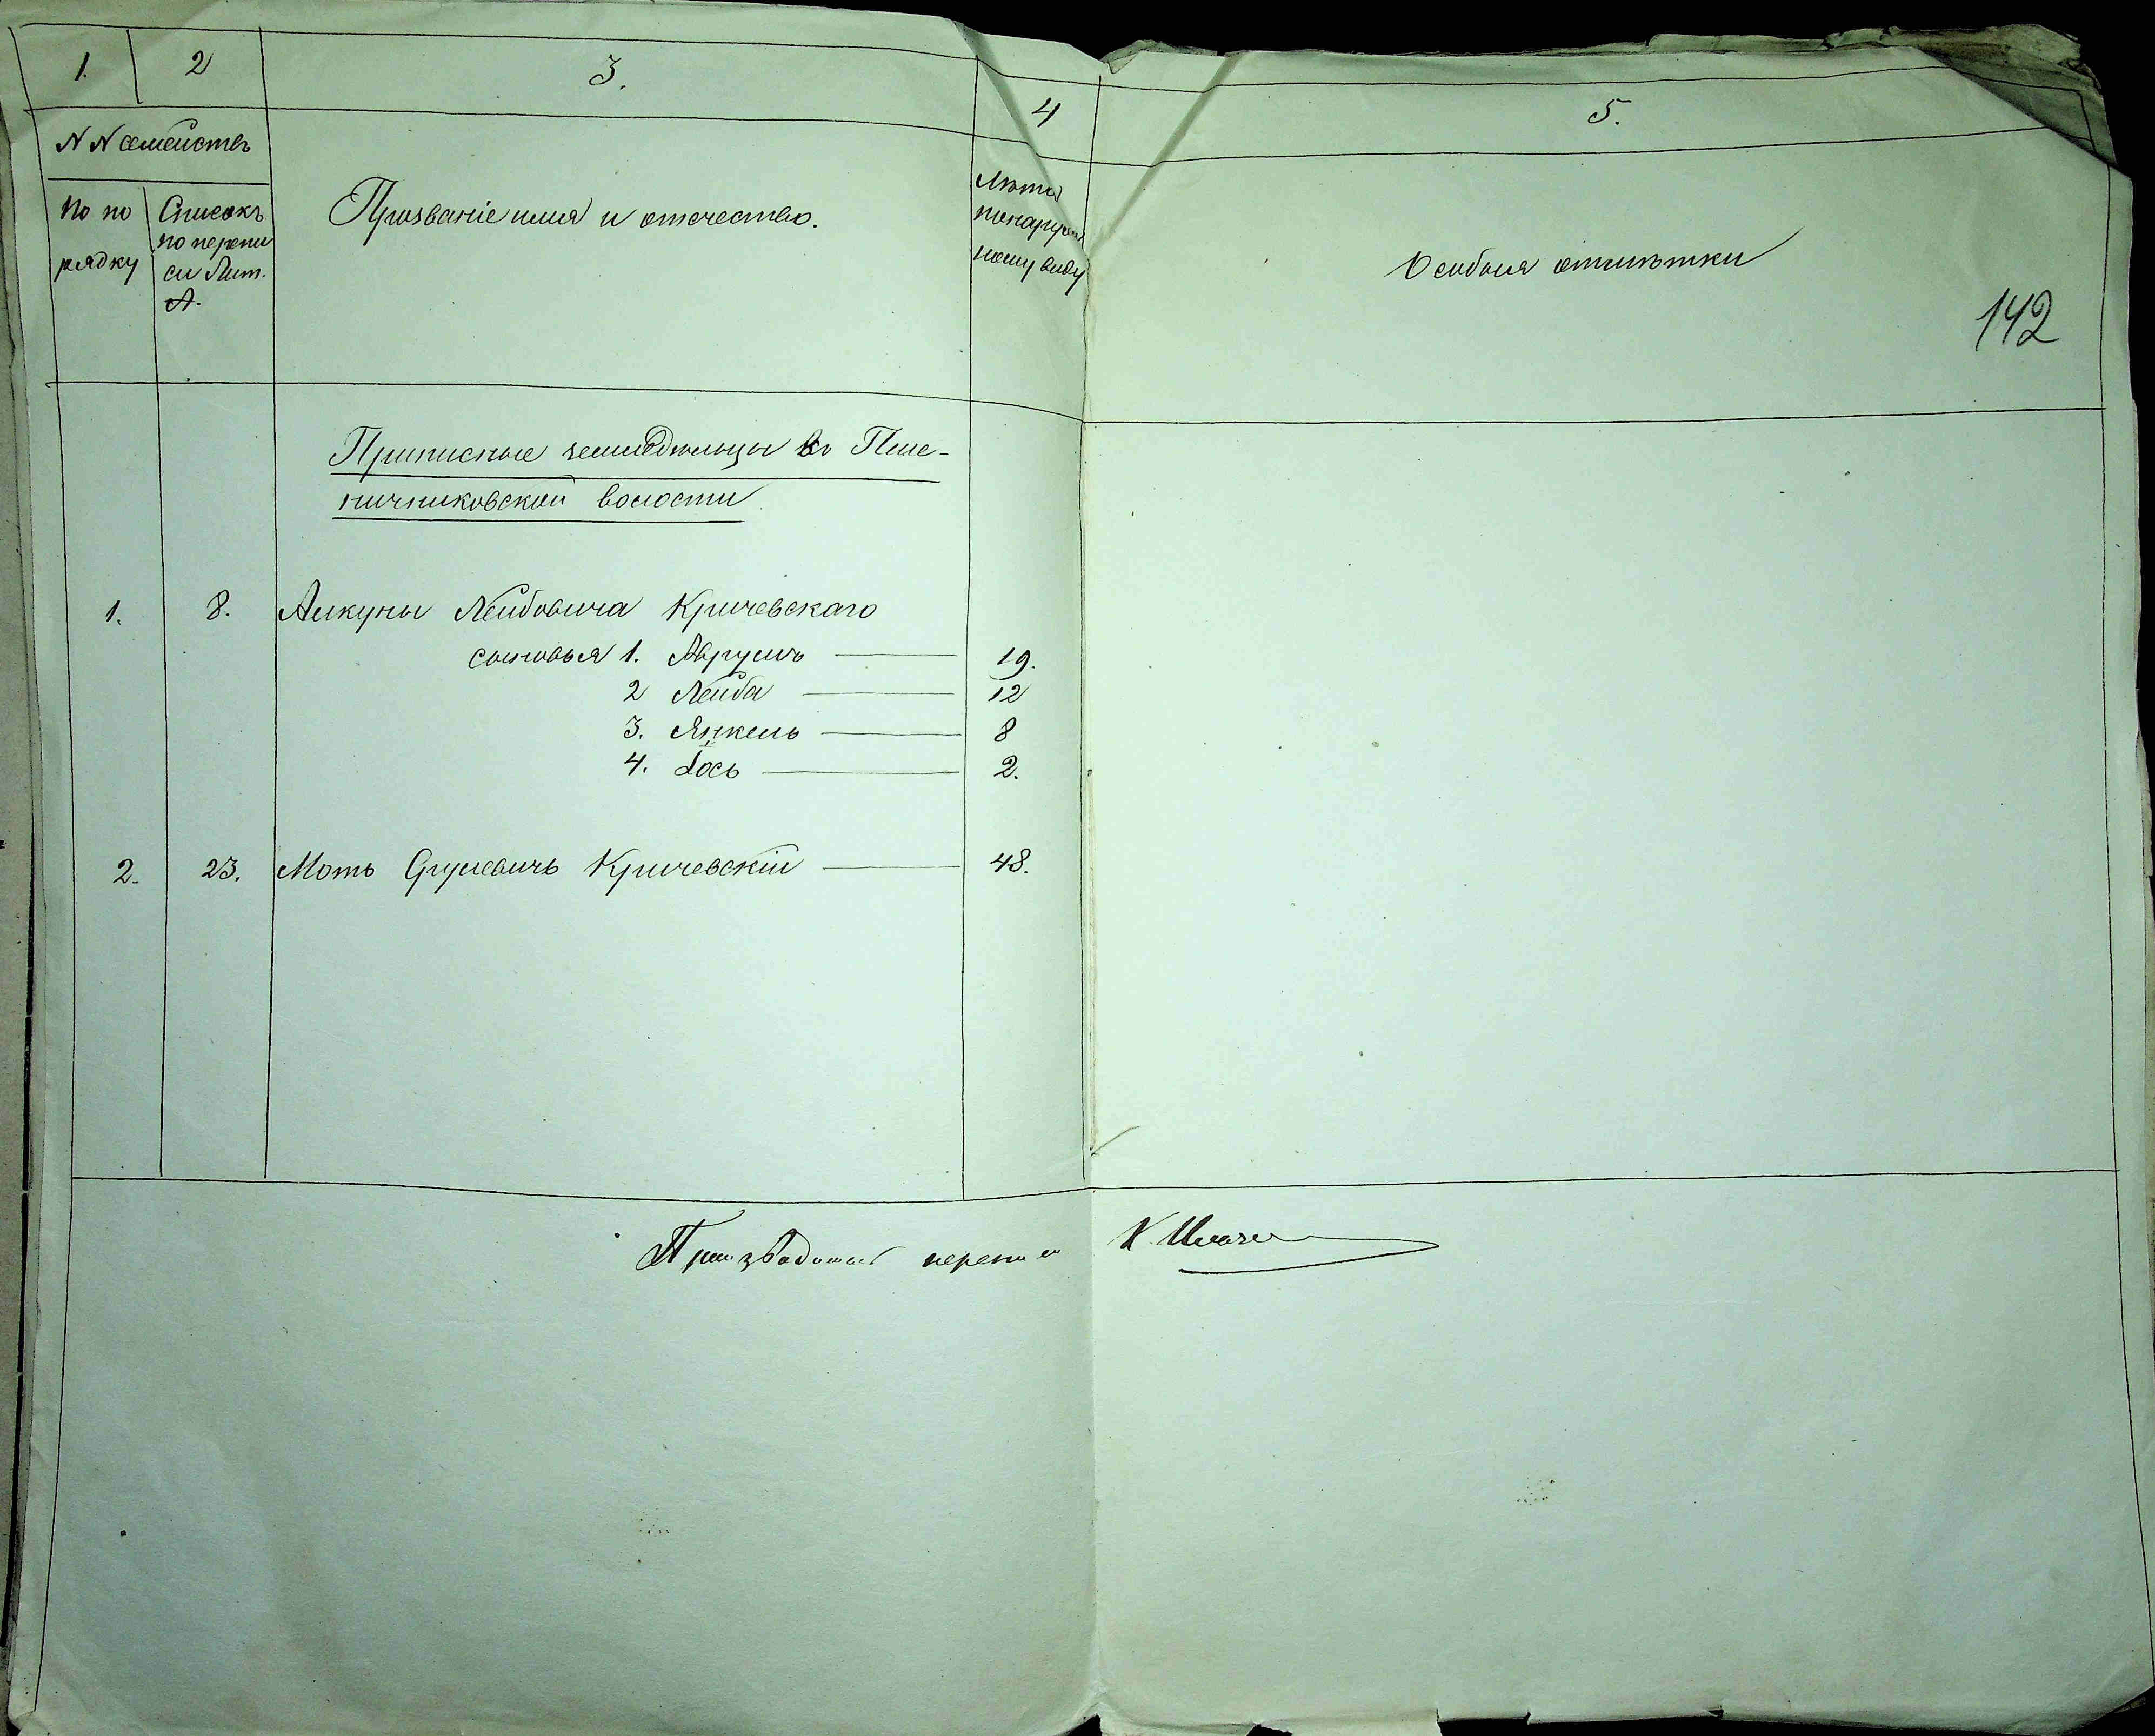 1.
2
3.
4
5.
N N семействъ
По по
рядку
Списокъ
по перепи
си Лит.
А.
Прозваніе имя и отчество.
Лѣта
понаруж
ному виду
Особыя отмѣтки
142
Приписные земледѣльцы въ Пше-
ничниковской волости
1. 8. Анкуны Лейбовича Кричевскаго
сыновья 1. Аврумъ 19.
2 Лейба 12
3. Янкель 8
4. Іось 2.
2. 23. Моть Срулевичъ Кричевскій 48.
Производилъ перепись К.